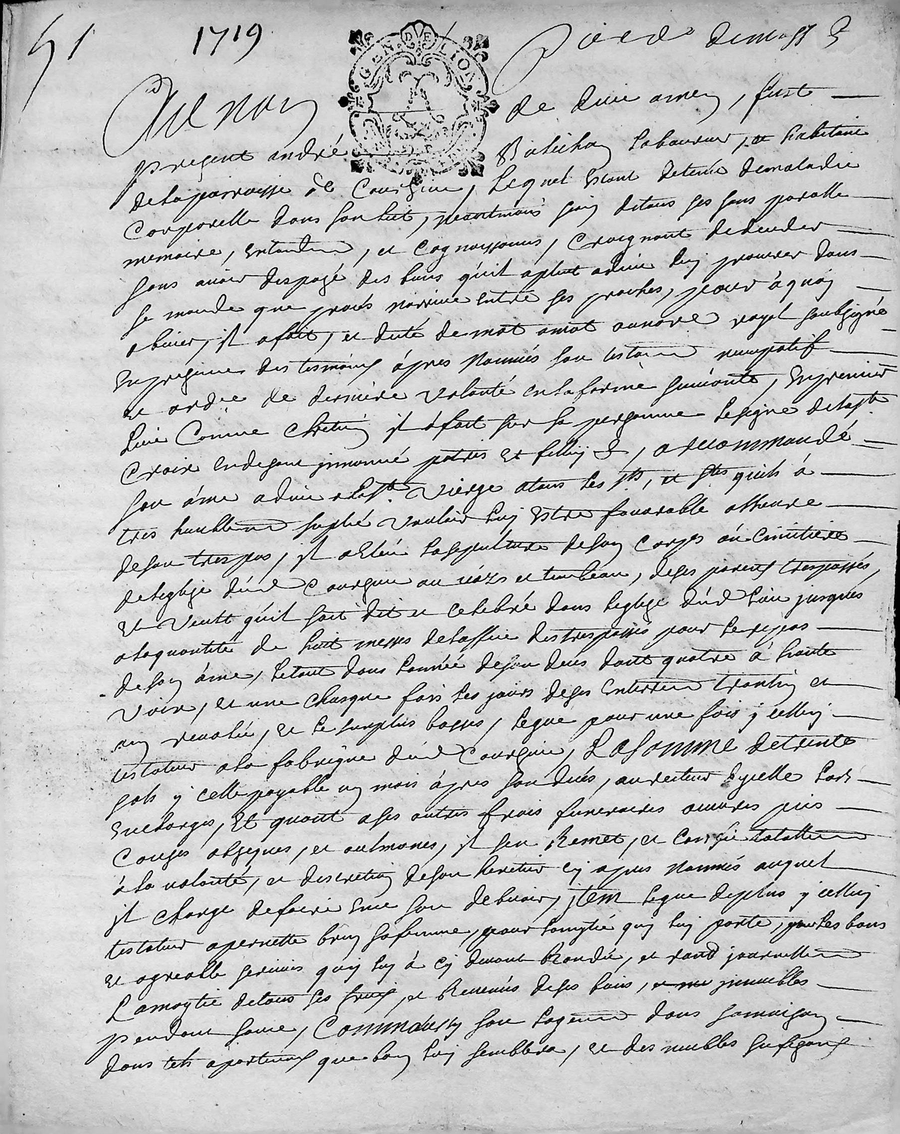 51 1719
GEN DE LION
Au nom de dieu amen, fust
present andré laboureur, et habitant
de la parroisse de Courgine, lequel estant detenu de maladie
corporelle dans son lit, neantmoins sain de tous ses sens parolle
memoire, entendem, et cognoissance, craignant deceder
sans avoir dispozé des biens qu'il a plut a dieu luy procurer dans
ce monde que procès narrive entre ses proches, pour à quoy
obvier, il a fait, et dicté de mot amot au notre royal soubsigné
en presence des tesmoins àpres nommés son testam nuncupatif
et ordce de derniere volonté en la forme suivante, En premier
Lieu Comme chretien il a fait sur sa personne le signe de la ste
Croix en disant in nomine patris et fillij &, a recommandé
son ame a dieu a la ste Vierge a tous les sts, et stes quils à
tres humblem suplié vouloir luy estre favorable a lheure
de son trespas, il a esleu la sepulture de son corps au cimitiere
de leglise dud Courgine au vazs et tombeau, de ses parens trespassés,
et veult quil soit dit et celebré dans leglise dud lieu jusques
a la quantité de huit messes de loffice des trespassés pour le repos
de son ame, le tout dans lannée de son deces dont quatre à haute
voix, et une chasque fois les jours de ses enterrem trantin et
an revolu, et le surplus basses, legue pour une fois y celluy
testateur a la fabrique dud Courgine, La somme de trente
sols y celle payable un mois àpres son deces, au recteur dycelle lors
en charges, Et quant a ses autres frais funeraires œuvres pies
Conges obseques, et aulmones, il sen Remet, et Confie totallem
à la volonté, et discretion de son heretier cy apres nommés auquel
il charge de faire en son debvoir, Item legue de plus y celluy
testateur a pernette brun sa femme, pour lamytié quy luy porte, pour les bons
et agreable services quy luy à cy devant Randu, et rand journellem
La moytié de tous ses fruis, et Revenus de ses biens, immeubles
pendant sa vie, Comme aussy son logem dans sa maison
dans tels apartem que bon luy semblera, et des meubles